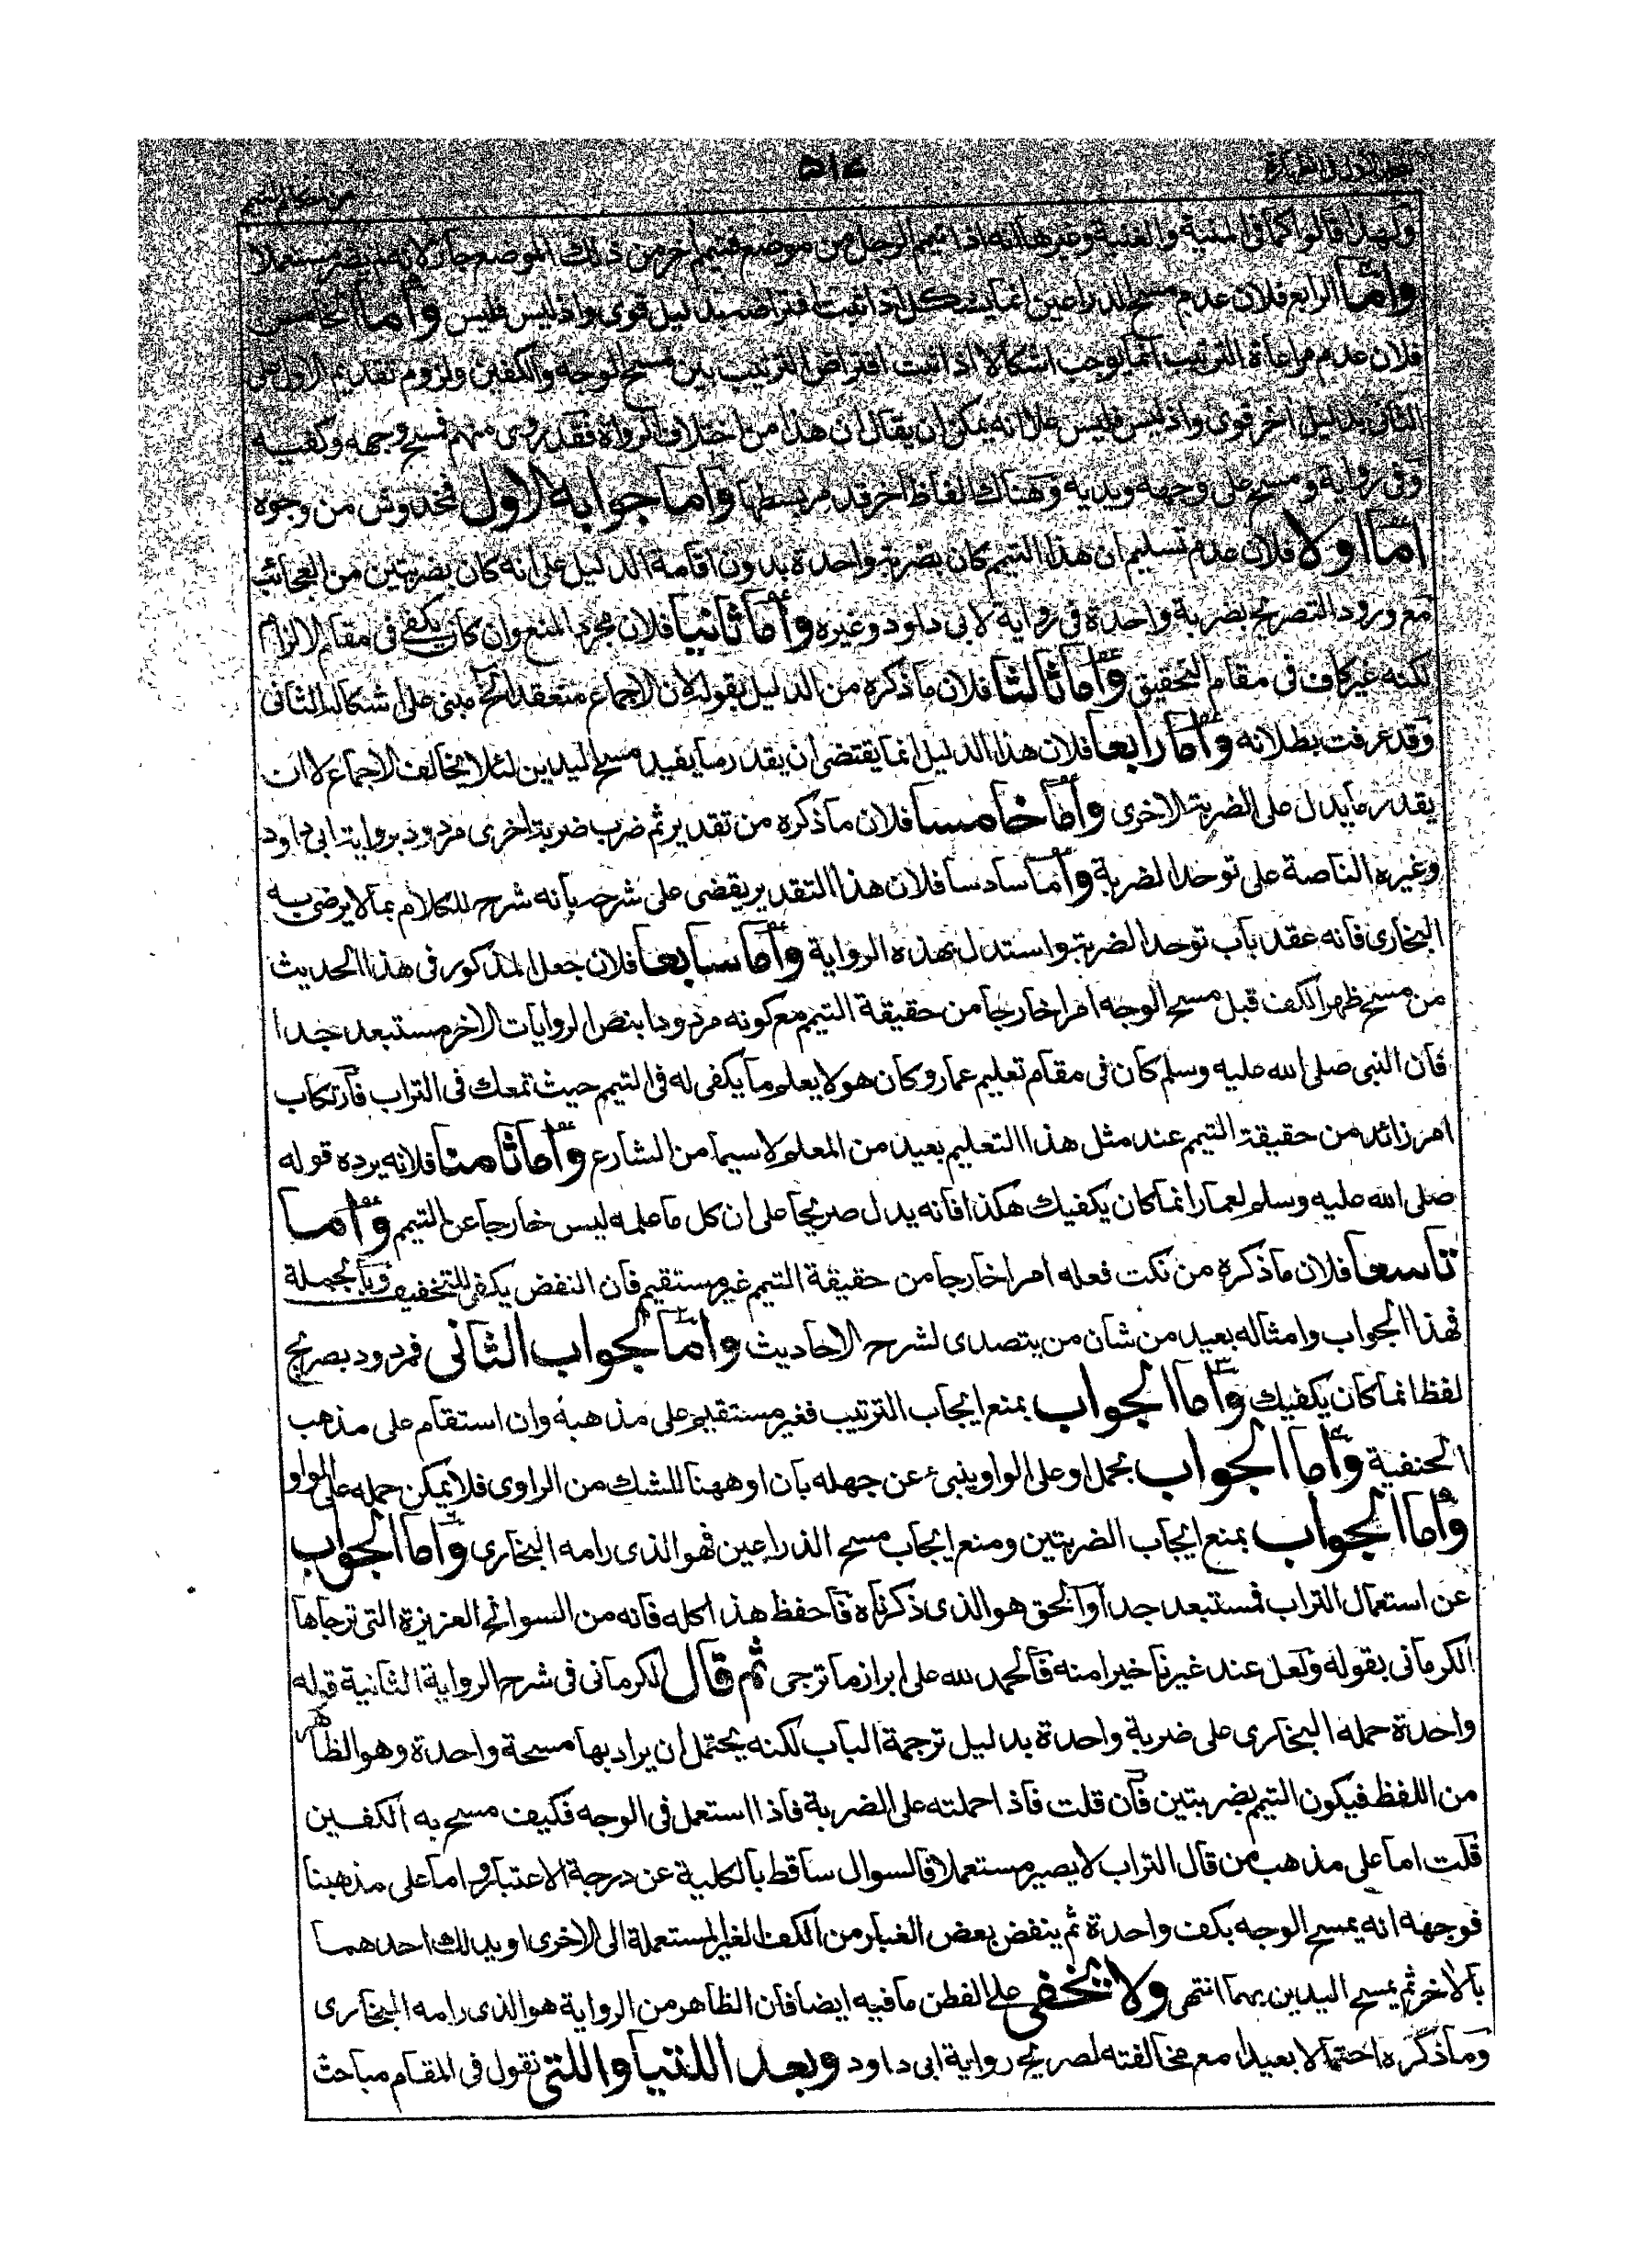 ٥١٤
ولهذا قالوا كما في المنية والغنية وغيرها انه اذا تيمم الرجل من موضع فتيمم اخر من ذلك الموضع جاز لانه لم يصر مستعملا
وأما الرابع فلان عدم مسح الذراعين انما يشكل اذا ثبت افتراضه بدليل قوى واذ ليس فليس وأما الخامس
فلان عدم مراعاة الترتيب انما يوجب اشكالا اذا ثبت افتراض الترتيب بين مسح الوجه والكفين ولزوم تقديم الاول على
الثانى بدليل اخر قوى واذ ليس فليس على انه يمكن ان يقال ان هذا من اختلاف الرواة فقد روى منهم فمسح وجهه وكفيه
وفى رواية ومسح على وجهه ويديه وهناك الفاظ اخر قد مر بسطها وأما جوابه الاول فمخدوش من وجوه
أما اولا فلان عدم تسليم ان هذا التيمم كان بضربة واحدة بدون اقامة الدليل على انه كان بضربتين من العجائب
مع ورود التصريح بضربة واحدة فى رواية لابى داود وغيره وأما ثانيا فلان مجرد المنع وان كان يكفى فى مقام الالزام
لكنه غير كاف فى مقام التحقيق وأما ثالثا فلان ما ذكره من الدليل بقوله لان الاجماع منعقد الخ مبنى على اشكاله الثانى
وقد عرفت بطلانه وأما رابعا فلان هذا الدليل انما يقتضى ان يقدر ما يفيد مسح اليدين لئلا يخالف الاجماع لا ان
يقدر ما يدل على الضربة الاخرى وأما خامسا فلان ما ذكره من تقدير ثم ضرب ضربة اخرى مردود برواية ابى داود
وغيره الناصة على توحد الضربة وأما سادسا فلان هذا التقدير يقضى على شرحه بأنه شرح للكلام بما لا يرضى به
البخارى فانه عقد باب توحد الضربة واستدل بهذه الرواية وأما سابعا فلان جعل المذكور فى هذا الحديث
من مسح ظهر الكف قبل مسح الوجه امرا خارجا من حقيقة التيمم مع كونه مردودا بنص الروايات الاخر مستبعد جدا
فان النبى صلى الله عليه وسلم كان فى مقام تعليم عمار وكان هو لا يعلم ما يكفى له فى التيمم حيث تمعك فى التراب فارتكاب
امر زائد من حقيقة التيمم عند مثل هذا التعليم بعيد من المعلم لا سيما من الشارع وأما ثامنا فلانه يرده قوله
صلى الله عليه وسلم لعمار انما كان يكفيك هكذا فانه يدل صريحا على ان كل ما علمه ليس خارجا عن التيمم وأما
تاسعا فلان ما ذكره من نكت فعله امرا خارجا من حقيقة التيمم غير مستقيم فان النفض يكفى للتخفيف وبالجملة
فهذا الجواب وامثاله بعيد من شان من يتصدى لشرح الاحاديث وأما الجواب الثانى فمردود بصريح
لفظ انما كان يكفيك وأما الجواب بمنع ايجاب الترتيب فغير مستقيم على مذهبه وان استقام على مذهب
الحنفية وأما الجواب بحمل او على الواو ينبئ عن جهله بان او ههنا للشك من الراوى فلا يمكن حمله على الواو
وأما الجواب بمنع ايجاب الضربتين ومنع ايجاب مسح الذراعين فهو الذى رامه البخارى وأما الجواب
عن استعمال التراب فمستبعد جدا والحق هو الذى ذكرناه فاحفظ هذا كله فانه من السوانح العزيزة التى ترجاها
الكرمانى بقوله ولعل عند غيرنا خيرا منه فالحمد لله على ابراز ما ترجى ثم قال الكرمانى فى شرح الرواية الثانية قوله
واحدة حمله البخارى على ضربة واحدة بدليل ترجمة الباب لكنه يحتمل ان يراد بها مسحة واحدة وهو الظاهر
من اللفظ فيكون التيمم بضربتين فان قلت فاذا حملته على الضربة فاذا استعمل فى الوجه فكيف مسح به الكفين
قلت اما على مذهب من قال التراب لا يصير مستعملا فالسوال ساقط بالكلية عن درجة الاعتبار واما على مذهبنا
فوجهه انه يمسح الوجه بكف واحدة ثم ينفض بعض الغبار من الكف الغير المستعملة الى الاخرى او يدلك احدهما
بالاخر ثم يمسح اليدين بهما انتهى ولا يخفى على الفطن ما فيه ايضا فان الظاهر من الرواية هو الذى رامه البخارى
وما ذكره احتمالا بعيدا مع مخالفته لصريح رواية ابى داود وبعد اللتيا والتى نقول فى المقام مباحث